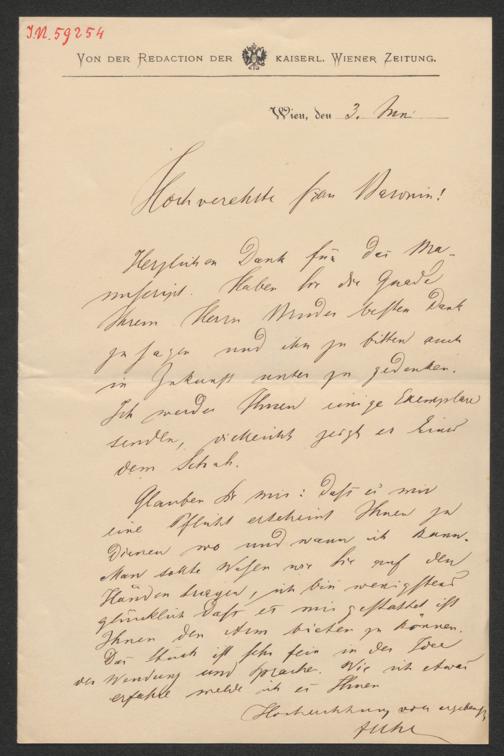 I.N. 59254
VON DER REDACTION DER KAISERL. WIENER ZEITUNG.
Wien, den 3. Juni
Hochverehrte Frau Baronin!
Herzlichen Dank für das Ma-
nuscript. Haben Sie die Gnade
Ihrem Herrn Bruder besten Dank
zu sagen und ihn zu bitten auch
in Zukunft unser zu gedenken.
Ich werde Ihnen einige Exemplare
senden, vielleicht zeigt er Eines
dem Schah.
Glauben Sie mir: daß es mir
eine Pflicht erscheint Ihnen zu
dienen wo und wann ich kann.
Man sollte Wesen wie Sie auf den
Händen tragen, ich bin wenigstens
glücklich daß es mir gestattet ist
Ihnen den Arm bieten zu können.
Das Stück ist sehr fein in der Idee
der Wendung und Sprache. Wie ich etwas
erfahre melde ich es Ihnen
Hochachtung voll ergebenst